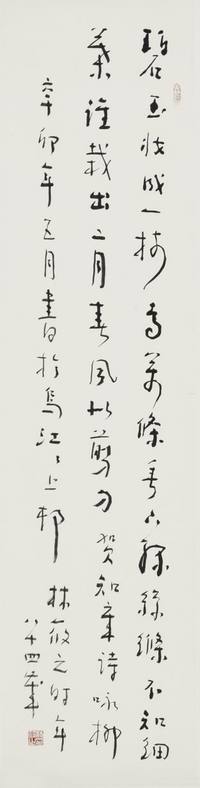 碧玉妝成一樹高萬條垂下綠絲縧不知細
葉誰裁出二月春風似剪刀 賀知章詩詠柳
辛卯年五月書於烏江江上邨 林散之時年
八十四歲